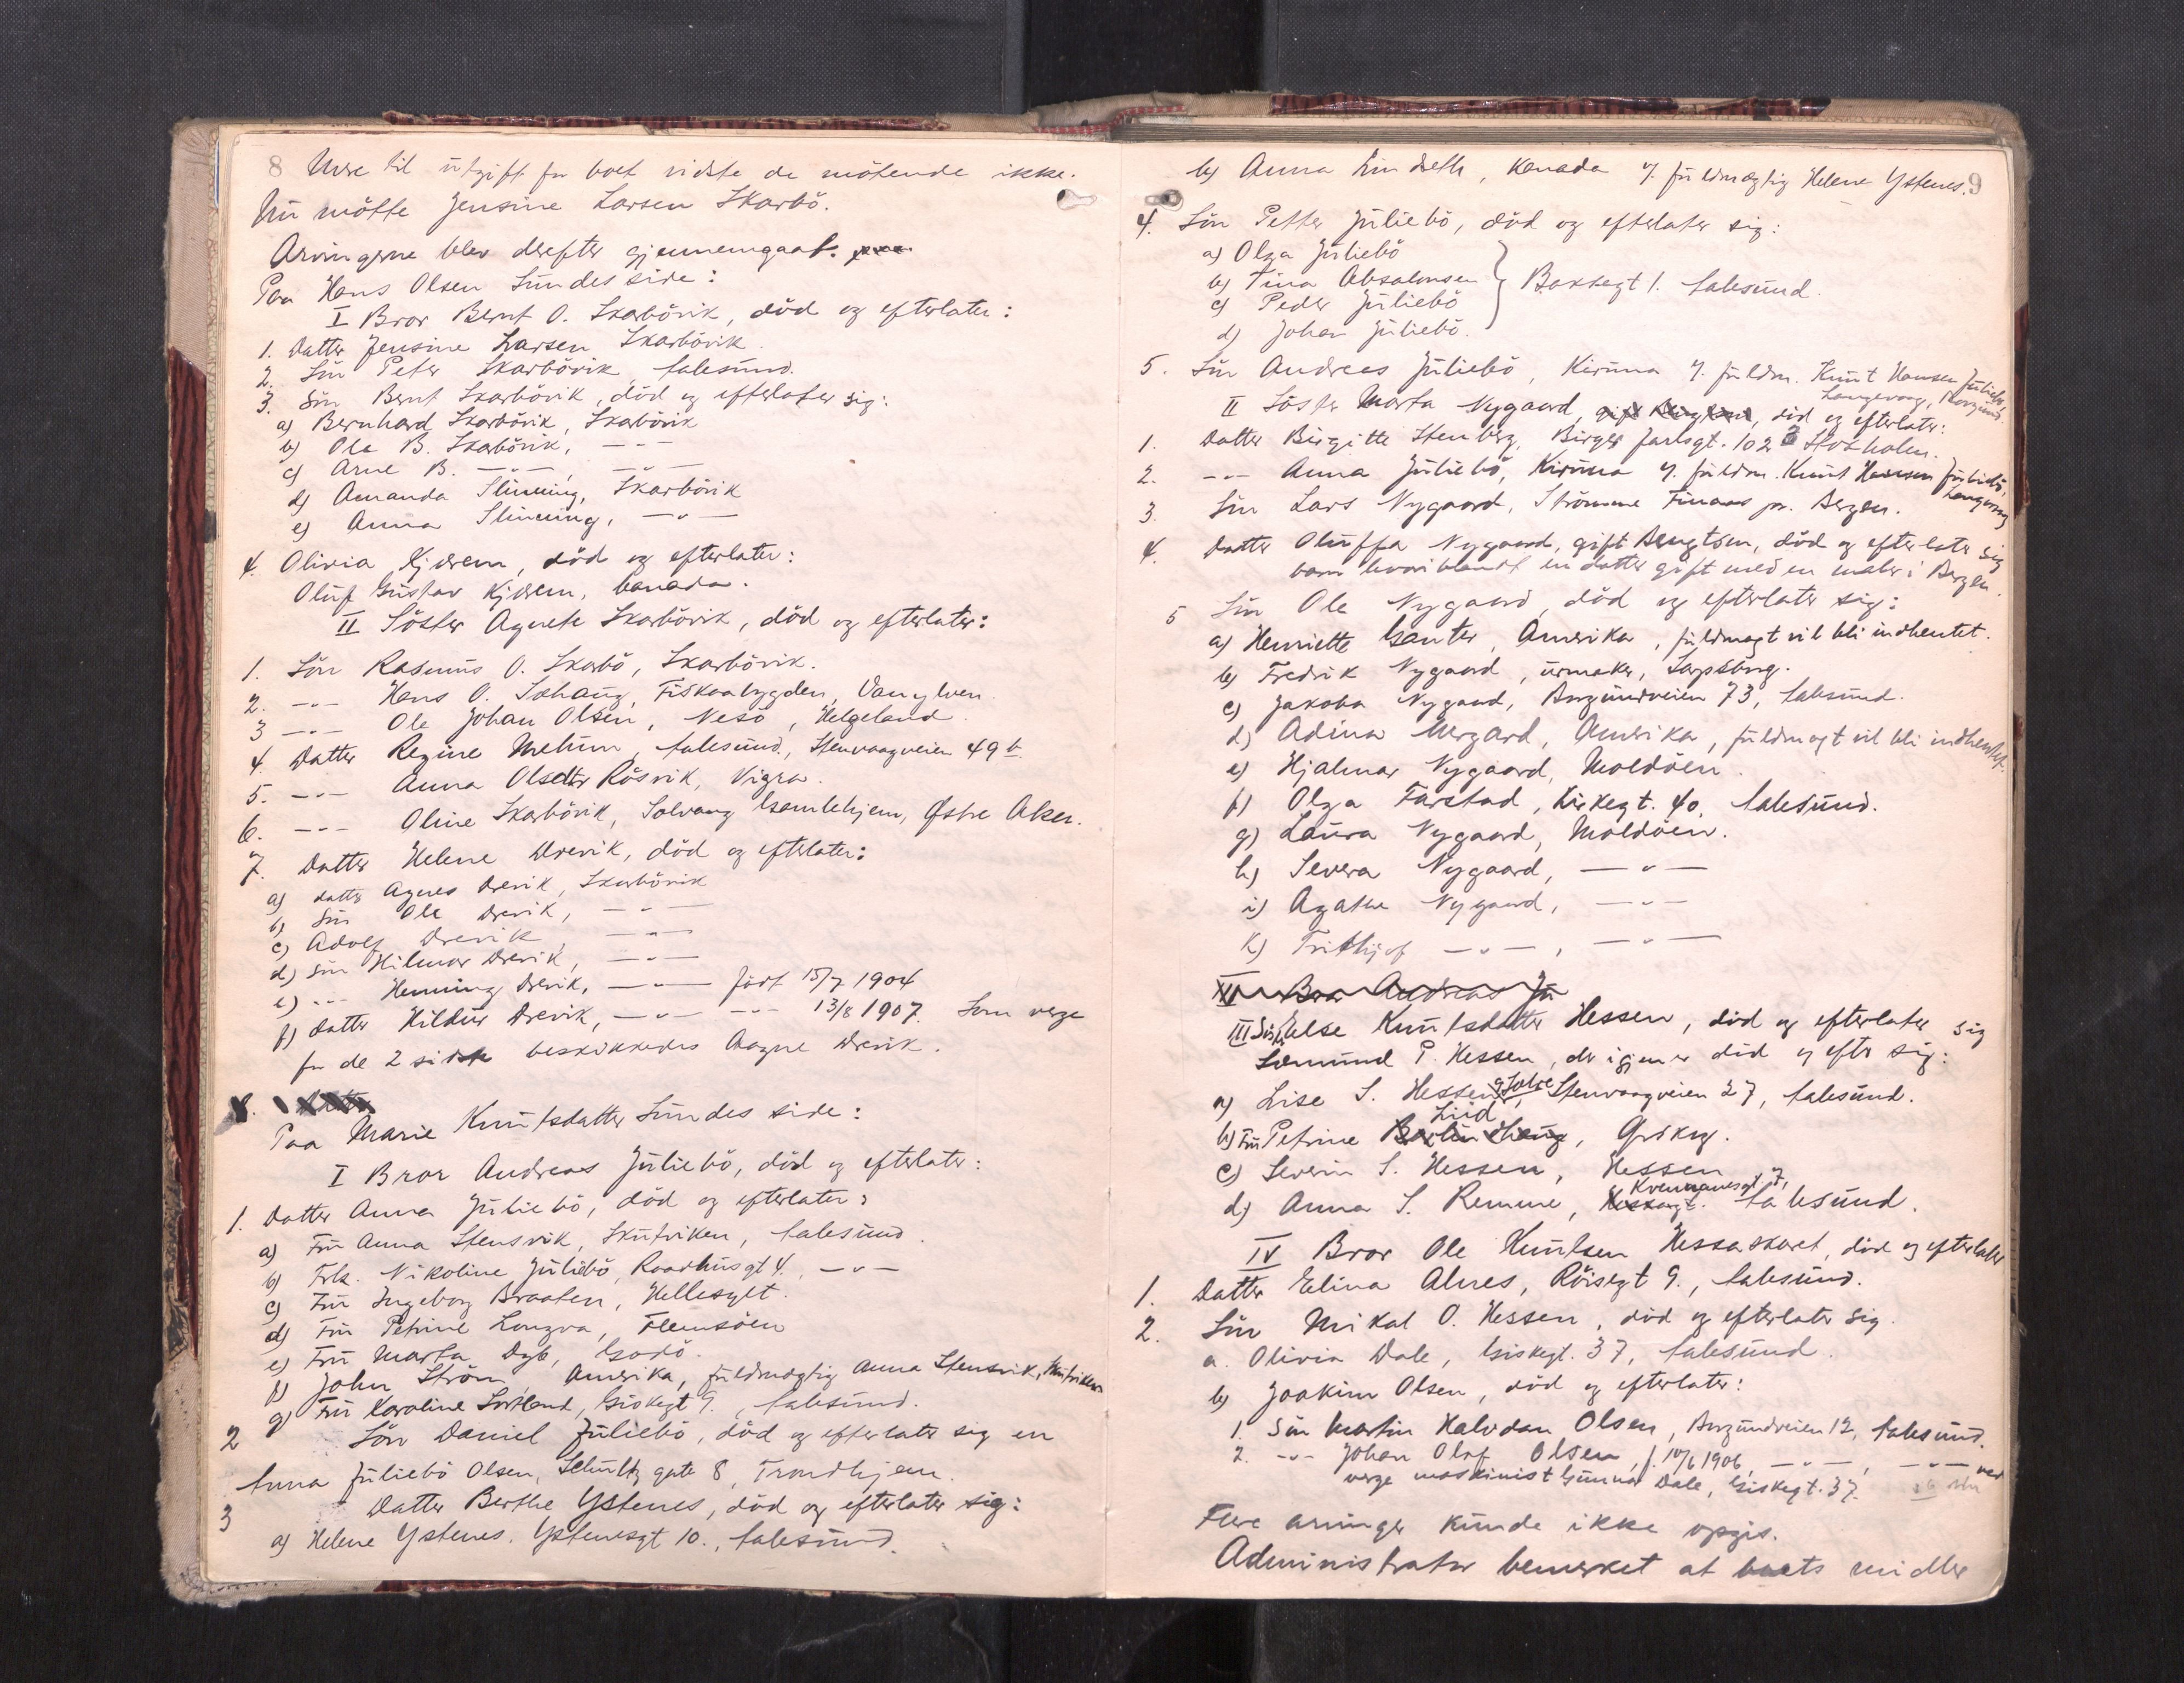 8
Mere til utgift for boet vidste de mötende ikke.
Nu mötte Jensine Larsen Skarbö.
Arvingerne blev derefter gjennemgaat.
Paa Hans Olsen Sundes side:
I Bror Bernt O. Skarbövik, död og efterlater:
1. Datter Jensine Larsen Skarbövik.
2. Sön Peter Skarbövik, Aalesund.
3. Sön Bernt Skarbövik, död og efterlater sig:
a) Bernhard Skarbövik, Skarbövik
b) Ole B. Skarbövik, -"-
c) Arne B. -"-, -"-
d) Amanda Slinning, Skarbövik
e) Anna Slinning, -"-
4. Olivia Kjerem, död og efterlater:
Oluf Gustav Kjerem, Canada.
II Söster Agnete Skarbövik, död og efterlater:
1. Sön Rasmus O. Skarbö, Skarbövik.
2. -"- Hans O. Sohaug, Fiskaabygden, Vanylven.
3 -"- Ole Johan Olsen, Nesö, Helgeland.
4. Datter Regine Melum, Aalesund, Stenvaagveien 49 b.
5. -"- Anna Olsdtr Rösvik, Vigra.
6. -"- Oline Skarbövik, Solvang Gamlehjem, Østre Aker.
7. Datter Helene Drevik, död og efterlater:
a) datter Agnes Drevik, Skarbövik
b) Sön Ole Drevik, -"-
c) Adolf Drevik -"-
d) Sön Hilmar Drevik, -"-
e) -"- Henning Drevik, -"- födt 15/7 1904
f) Datter Hildur Drevik, -"- -"- 13/8 1907. Som verge
for de 2 sidste beskikkedes Aagne Drevik.
8.
Paa Marie Knutsdatter Sundes side:
I Bror Andreas Juliebö, död og efterlater:
1. Datter Anna Juliebö, död og efterlater:
a) Fru Anna Stensvik, Skutviken, Aalesund.
b) Frk. Nikoline Juliebö, Raadhusgt 4. -"-
c) Fru Ingeborg Braaten, Hellesylt.
d) Fru Petrine Longva, Flemsöen
e) Fru Marta Dyb, Godö.
f) John Ström, Amerika, fuldmægtig Anna Stensvik, Skutviken
g) Fru Karoline Sortland, Giskegt 9., Aalesund.
2 Sön Daniel Juliebö, död og efterlater sig en
Anna Juliebö Olsen, Schultz gate 8, Trondhjem.
3 Datter Berthe Ystenes, död og efterlater sig:
a) Helene Ystenes. Ystenesgt 10., Aalesund.
9
b) Anna Lindseth, Kanada v. fuldmægtig Helene Ystenes.
4. Sön Petter Juliebö, död og efterlater sig:
a) Olga Juliebö
b) Tina Absalonsen
c) Peder Juliebö
d) Johan Juliebö.
Baksegt 1. Aalesund.
5. Sön Andreas Juliebö, Kiruna v. fuldm. Knut Hansen Juliebö,
Langevaag, Borgund.
II Söster Marta Nygaard, död og efterlater:
1. Datter Birgitte Stenberg, Birger Jarlsgt. 102 Stokholm.
2. -"- Anna Juliebö, Kiruna v. fuldm. Knut Hansen Juliebö,
Langevaag
3. Sön Lars Nygaard, Strömme Finans pr. Bergen.
4. Datter Oluffa Nygaard, gift Bengtsen, död og efterlater sig
barn hvoriblandt en datter gift med en maler i Bergen.
5 Sön Ole Nygaard, död og efterlater sig:
a) Henriette Ganter, Amerika, fuldmagt vil bli indhentet.
b) Fredrik Nygaard, urmaker, Sarpsborg.
c) Jakoba Nygaard, Borgundveien 73, Aalesund.
d) Adina Mergard, Amerika, fuldmagt vil bli indhentet.
e) Hjalmar Nygaard, Moldöen.
f) Olga Farstad, Kirkegt. 40. Aalesund.
g) Laura Nygaard, Moldöen.
h) Severa Nygaard, -"-
i) Agathe Nygaard, -"-
k) Frithjof -"-, -"-
III Bror Andreas Ju
III Söster Else Knutsdatter Hessen, död og efterlater sig
Sæmund P. Hessen, der igjen er död og efter sig:
a) Lise S. Hessen, Stenvaagveien 27, Aalesund.
b) Fru Petrine Liid, Gurskøy.
c) Severin S. Hessen, Hessen
d) Anna S. Remme, Kvennanesgt 7, Aalesund.
IV Bror Ole Knutsen Hessaskaret, död og efterlater
1. Datter Elina Alnes, Röisegt 9., Aalesund.
2. Sön Mikal O. Hessen, död og efterlater sig.
a. Olivia Dale, Giskegt. 37, Aalesund.
b) Joakim Olsen, död og efterlater:
1. Sön Martin Halvdan Olsen, Borgundveien 12, Aalesund.
2. -"- Johan Olaf Olsen, f. 10/6 1906, -"-, -"- ved
verge maskinist Gunnar Dale, Giskegt. 37.
Flere arvinger kunde ikke opgis.
Administrator bemerket at boets midler